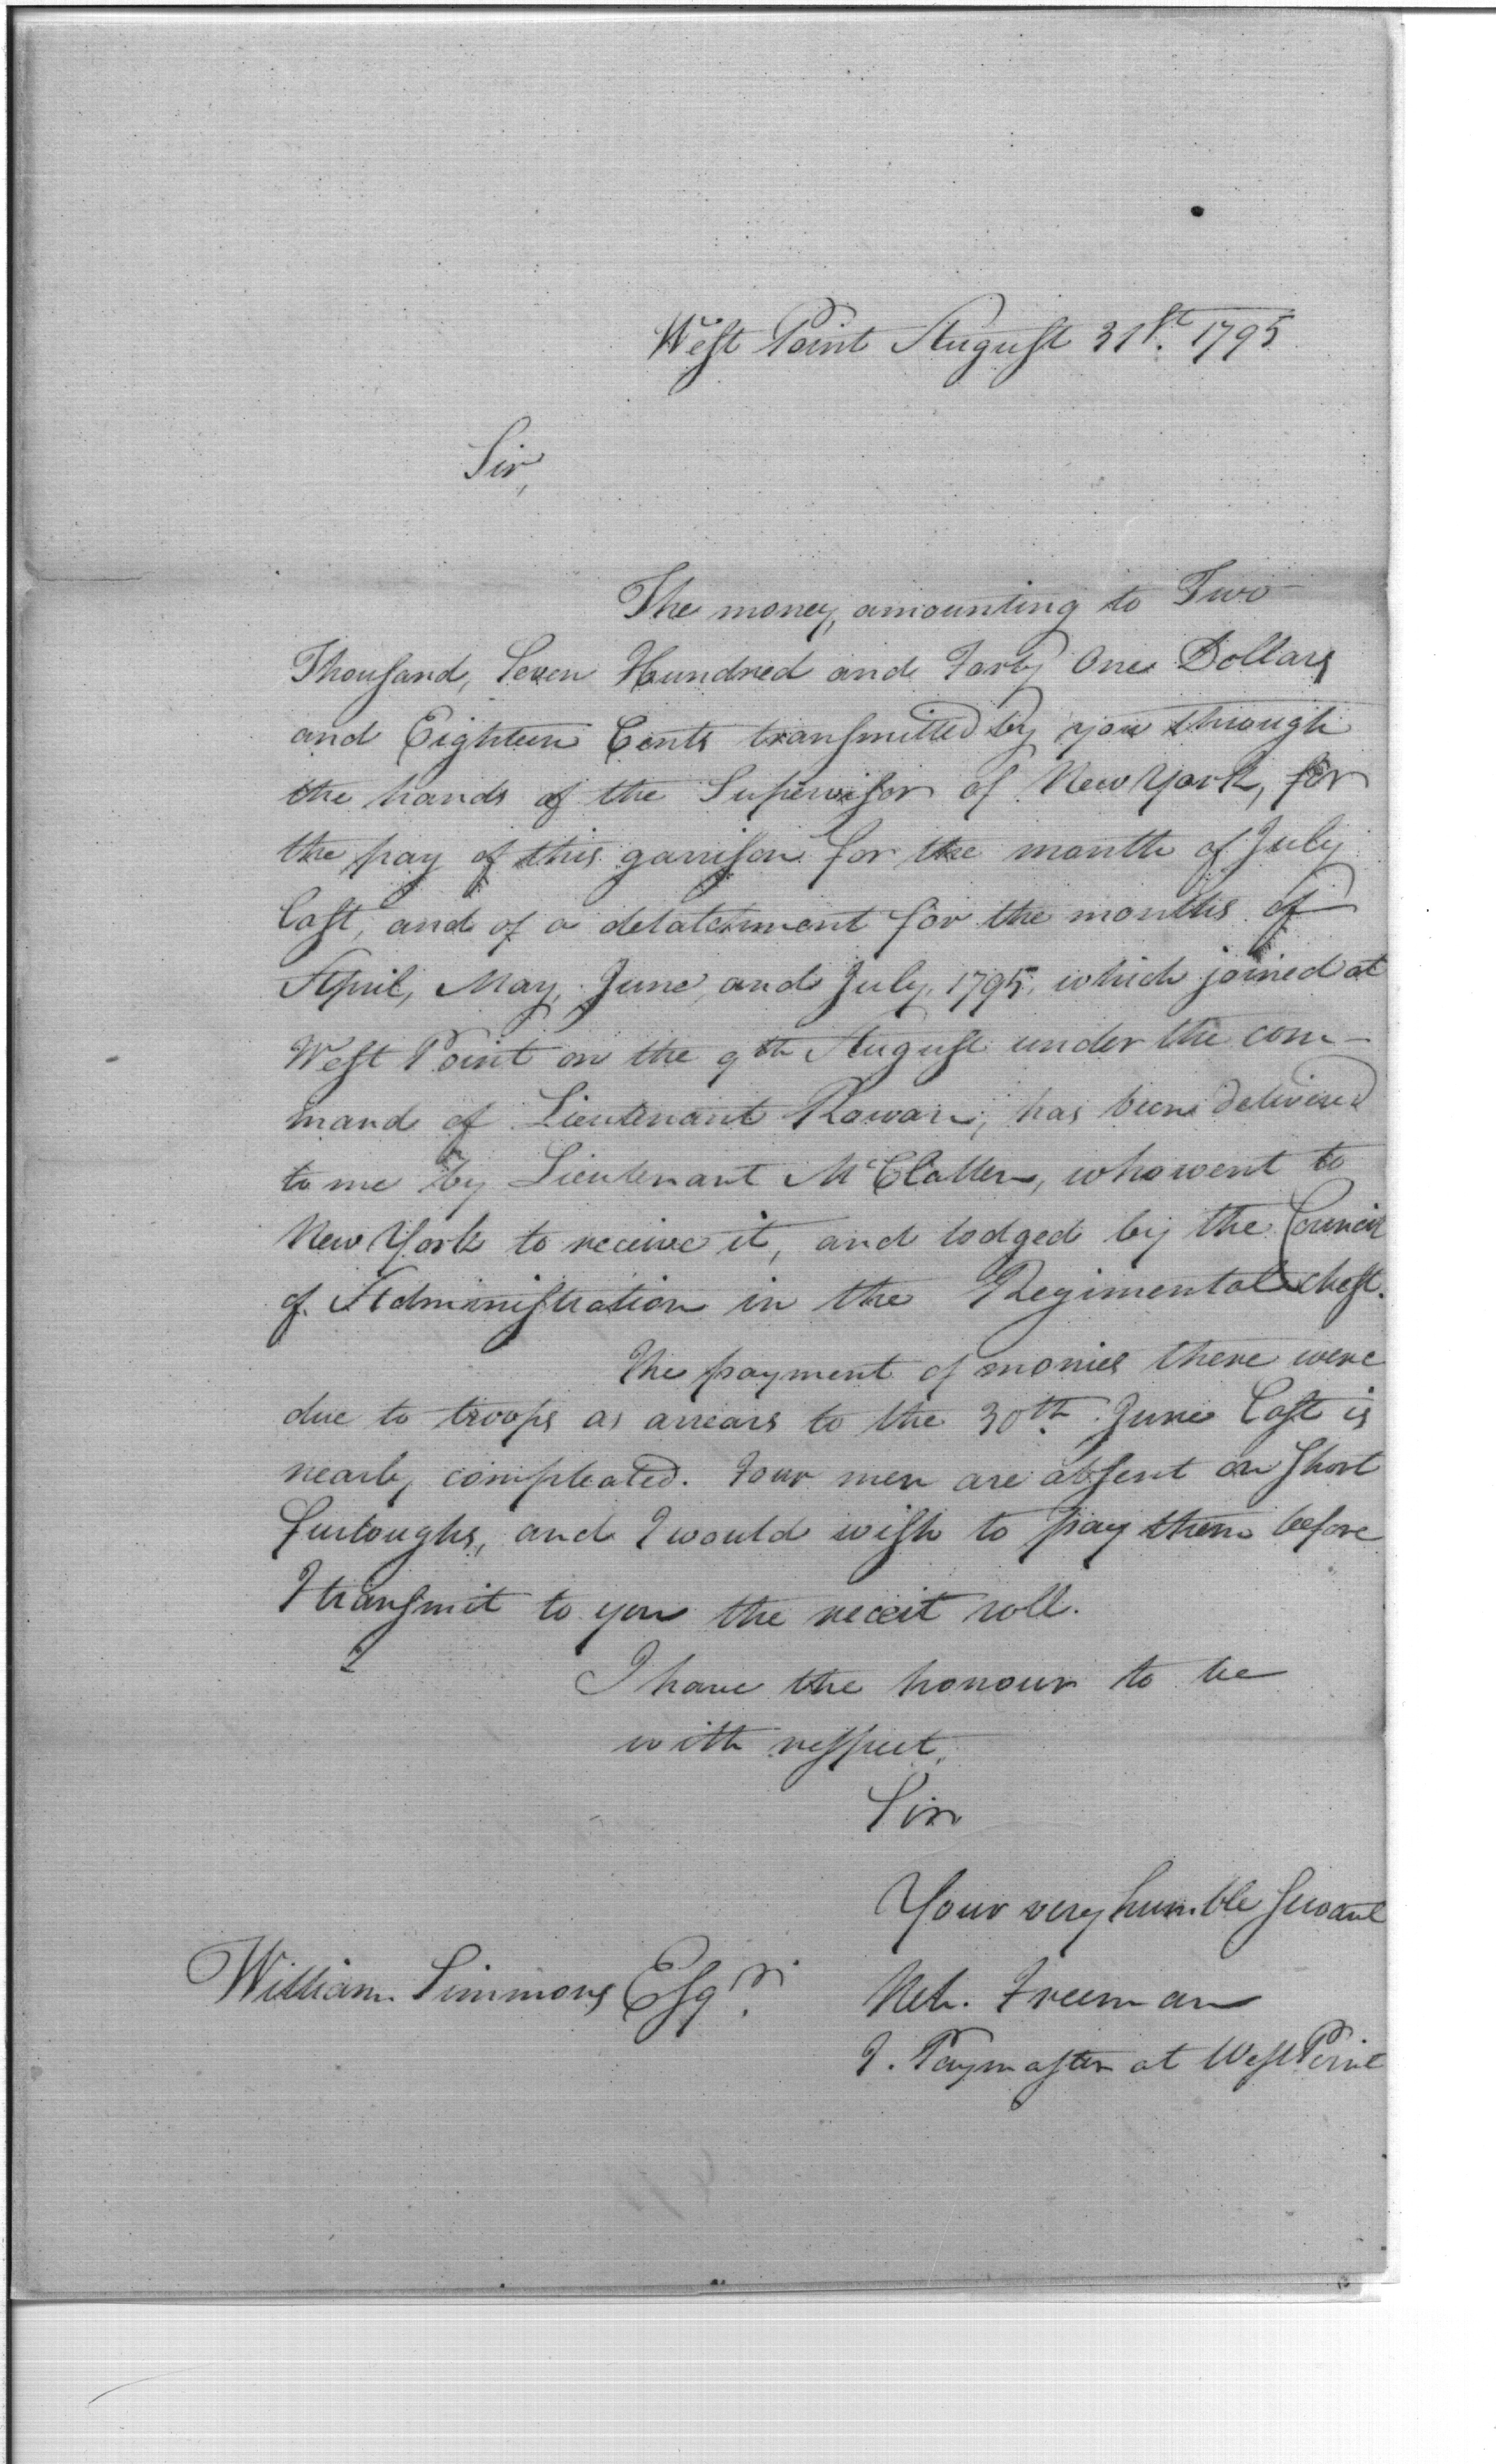 West Point August 31st. 1795
Sir,
The money, amounting to Two
Thousand, Seven Hundred and Forty One Dollars
and Eighteen Cents transmitted by you through
the hands of the Supervisor of New York, for
the pay of this garrison for the month of July
last, and of a detatchment for the months of
April, May, June, and July, 1795, which joined at
West Point on the 9th August under the com-
mand of Lieutenant Rowan, has been delivered
to me by Lieutenant McClallen, who went to
New York to receive it, and lodged by the Council
of Administration in the Regimental chest.
The payment of monies there were
due to troops as arrears to the 30th. June last is
nearly compleated. Four men are absent on short
furloughs, and I would wish to pay them before
I transmit to you the receit roll.
I have the honour to be
with respect,
Sir
Your very humble servant
William Simmons Esqr.
Neh. Freeman
Paymaster at West Point